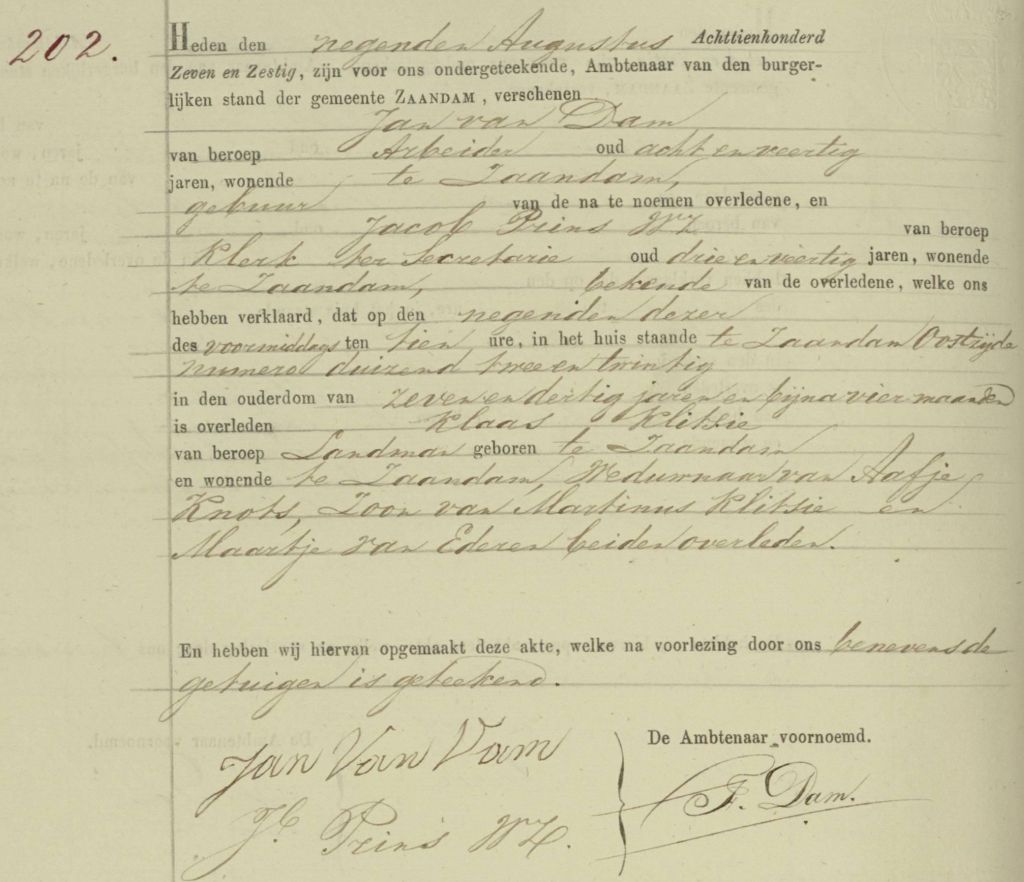 202.
Heden den negenden Augustus Achttienhonderd
Zeven en Zestig, zijn voor ons ondergeteekende, Ambtenaar van den burger-
lijken stand der gemeente ZAANDAM, verschenen
Jan van Dam
van beroep Arbeider oud acht en veertig
jaren, wonende te Zaandam,
gebuur van de na te noemen overledene, en
Jacob Prins WZ van beroep
Klerk ter Secretarie oud drie en veertig jaren, wonende
te Zaandam, bekende van de overledene, welke ons
hebben verklaard, dat op den negenden dezer
des voormiddags ten tien ure, in het huis staande te Zaandam Oostzijde
numero duizend twee en twintig
in den ouderdom van zeven en dertig jaren en bijna vier maanden
is overleden Klaas Klitsie
van beroep Landman geboren te Zaandam
en wonende te Zaandam, Weduwnaar van Aafje
Knots, Zoon van Martinus Klitsie en
Maartje van Ederen beiden overleden.
En hebben wij hiervan opgemaakt deze akte, welke na voorlezing door ons benevens de
getuigen is geteekend.
Jan Van Dam
De Ambtenaar voornoemd.
F. Dam.
Jb. Prins WZ.